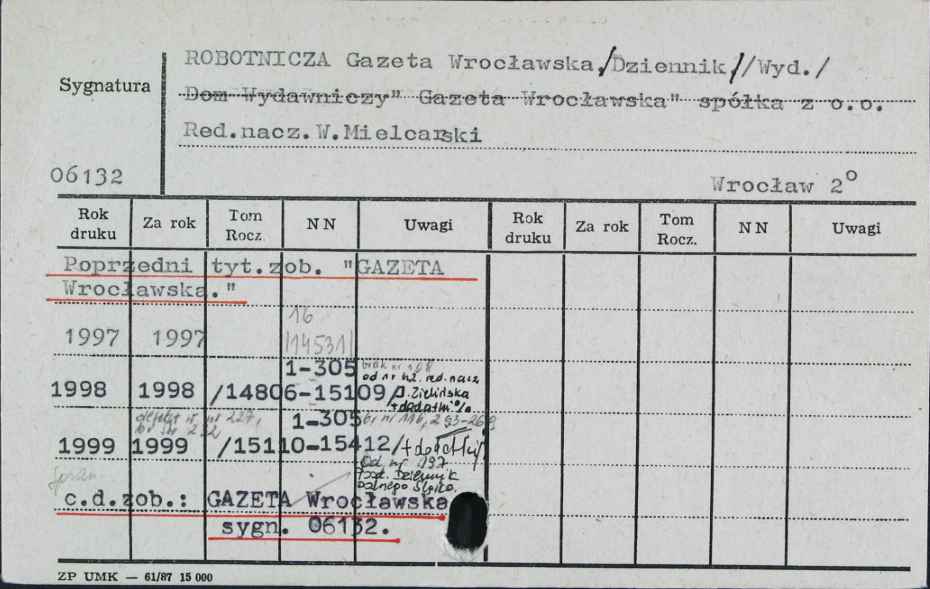 ROBOTNICZA Gazeta Wrocławska,/Dziennik//Wyd./
Sygnatura
Dom Wydawniczy" Gazeta Wrocławska" spółka z o.o.
Red.nacz.W.Mielcarski
06132
Wrocław 2°
Rok druku Za rok Tom Rocz. NN Uwagi Rok druku Za rok Tom Rocz. NN Uwagi
Poprzedni tyt.zob. "GAZETA
Wrocławska."
16
1997 1997 /14531/
1-305
od nr red.nacz.
1998 1998 /14806-15109/ J. Zielińska
+dodatki
1-305
1999 1999 /15110-15412/+dodatki
Od nr 197
Dziennik
c.d.zob.: GAZETA Wrocławska
sygn. 06132.
ZP UMK — 61/87 15 000